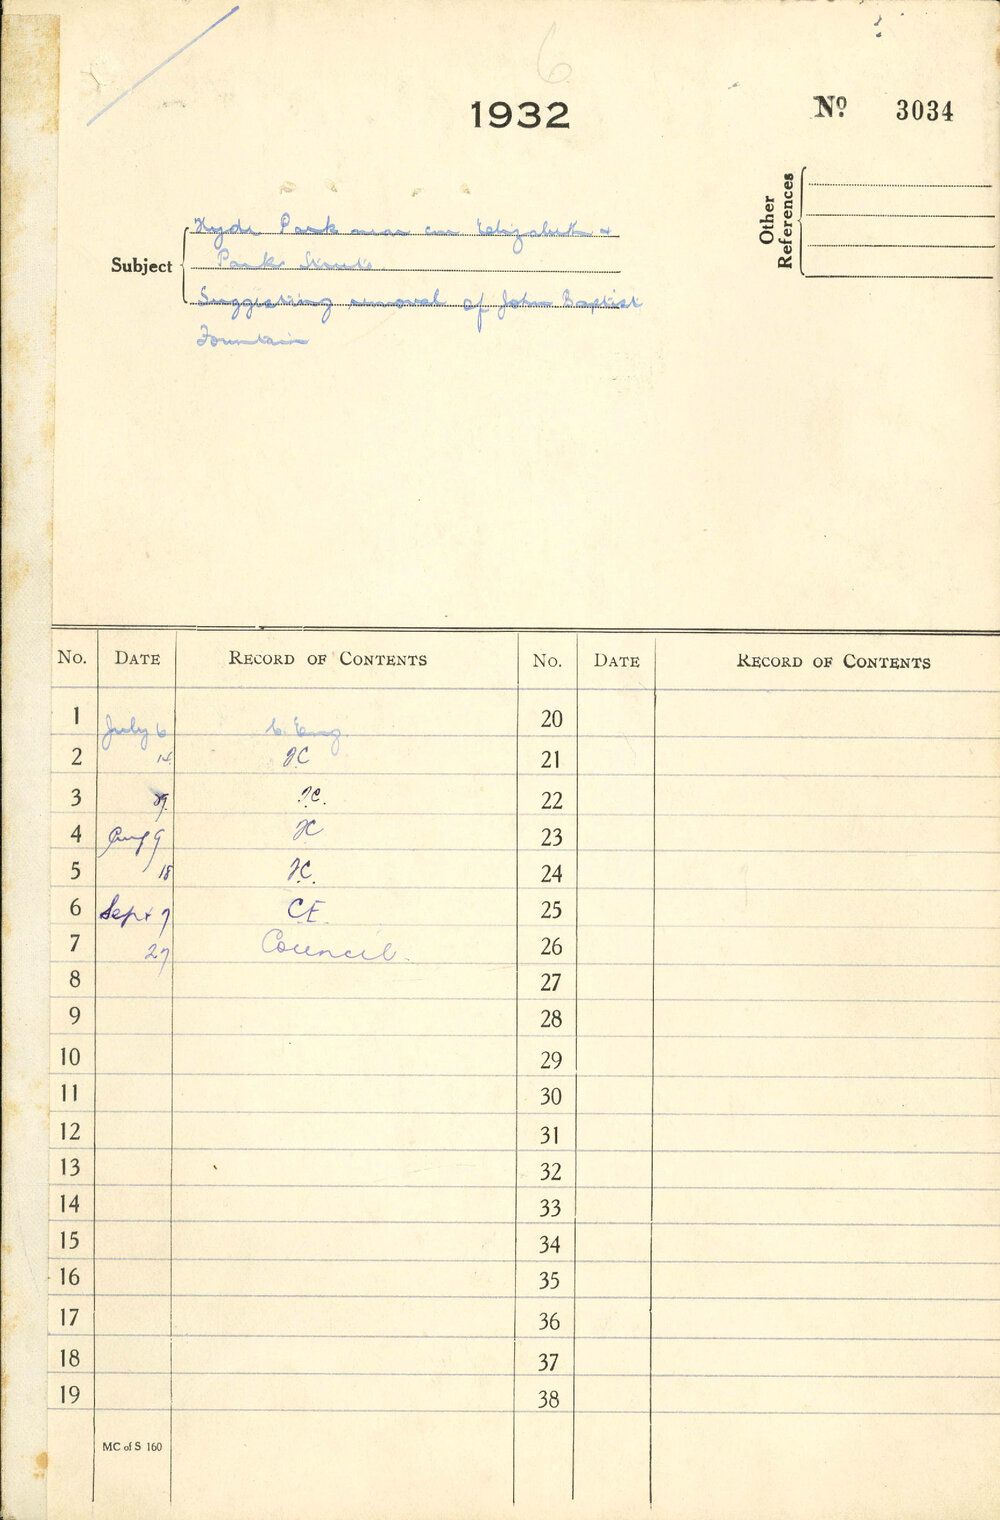 6
1932
No 3034
Other References
Subject
Hyde Park near cnr Elizabeth &
Park Streets.
Suggesting removal of John Baptist
Fountain
No. DATE RECORD OF CONTENTS No. DATE RECORD OF CONTENTS
1 July 6 C. Eng. 20
2 14 21
3 29 22
4 Aug 9 23
5 18 24
6 Sept 7 CE 25
7 27 Council. 26
8 27
9 28
10 29
11 30
12 31
13 32
14 33
15 34
16 35
17 36
18 37
19 38
MC of S 160